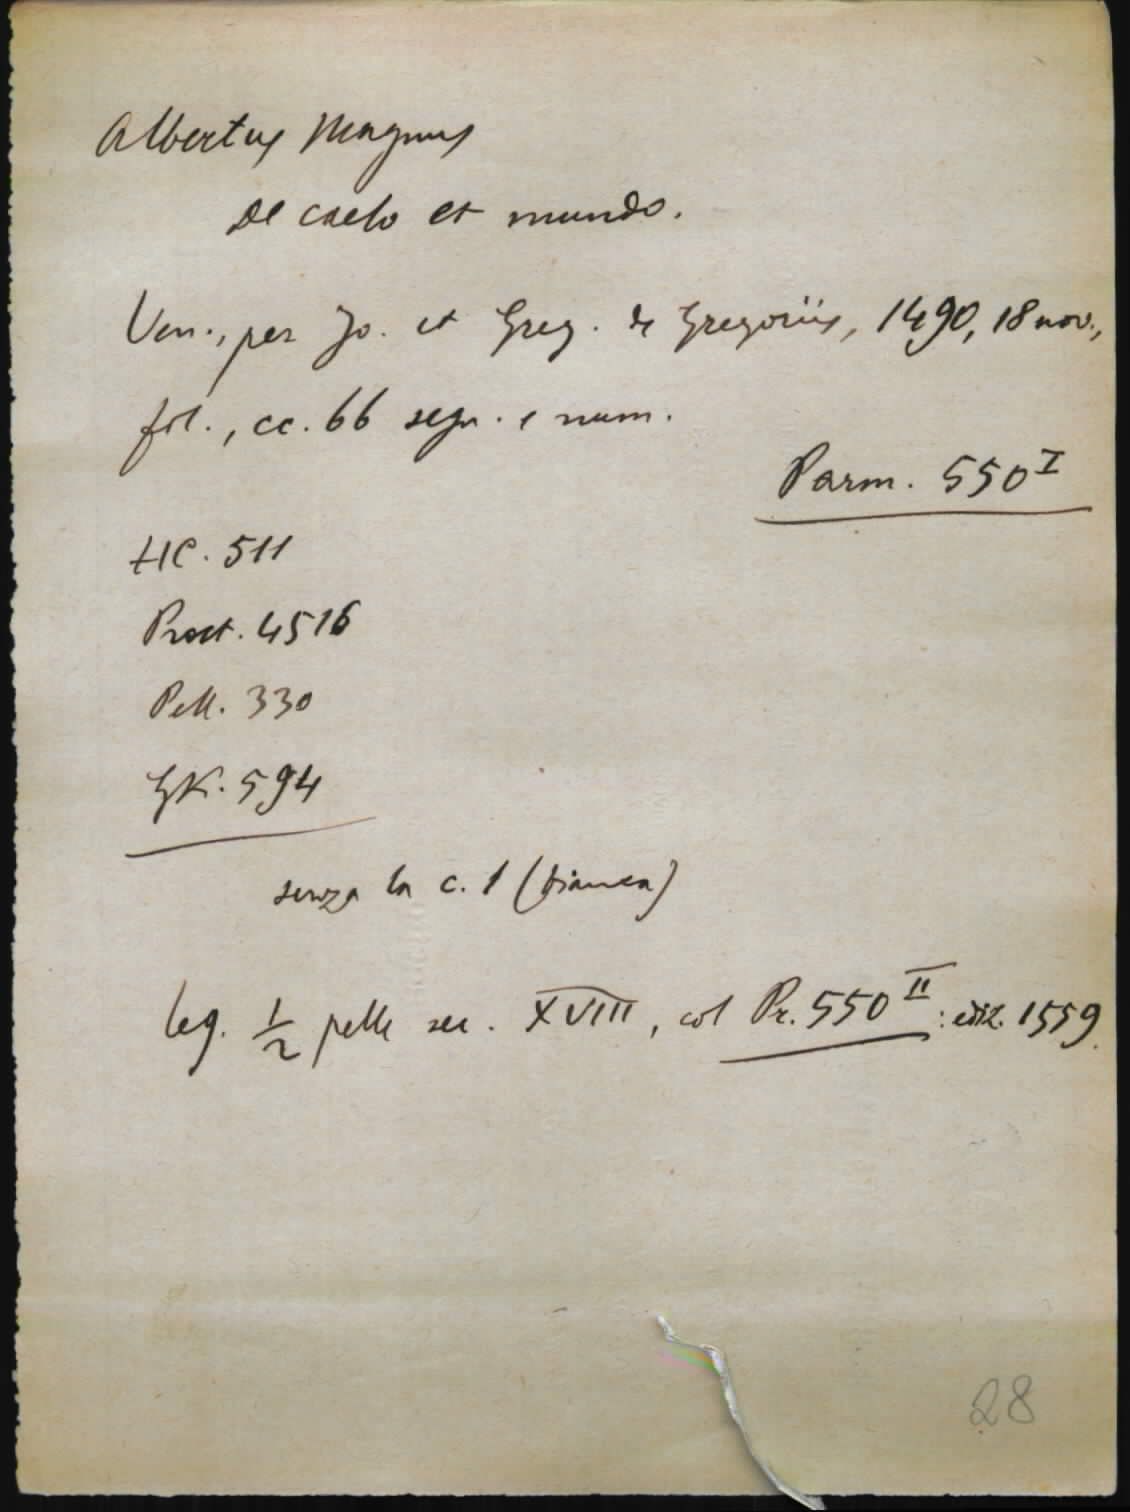 Albertus Magnus
De caelo et mundo.
Ven., per Jo. et Greg. de Gregoriis, 1490, 18 nov.,
fol., cc. 66 segn. e num.
Parm. 550 I
HC. 511
Proct. 4516
Pell. 330
GK. 594
senza la c. 1 (bianca)
leg. 1/2 pelle sec. XVIII, col Pr. 550 II : ediz. 1559.
28